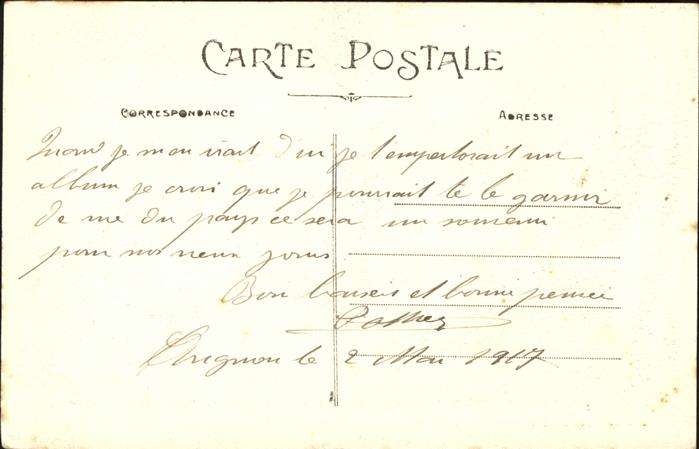 CARTE POSTALE
CORRESPONDANCE
ADRESSE
Quand je men irait d'ici je t'emporterait un
album je croi que je pourrait te le garnir
de vue du pays ce sera un souvenir
pour nos vieux jours
Bon baisers et bonne pensée
Avignon le 2 Mai 1917